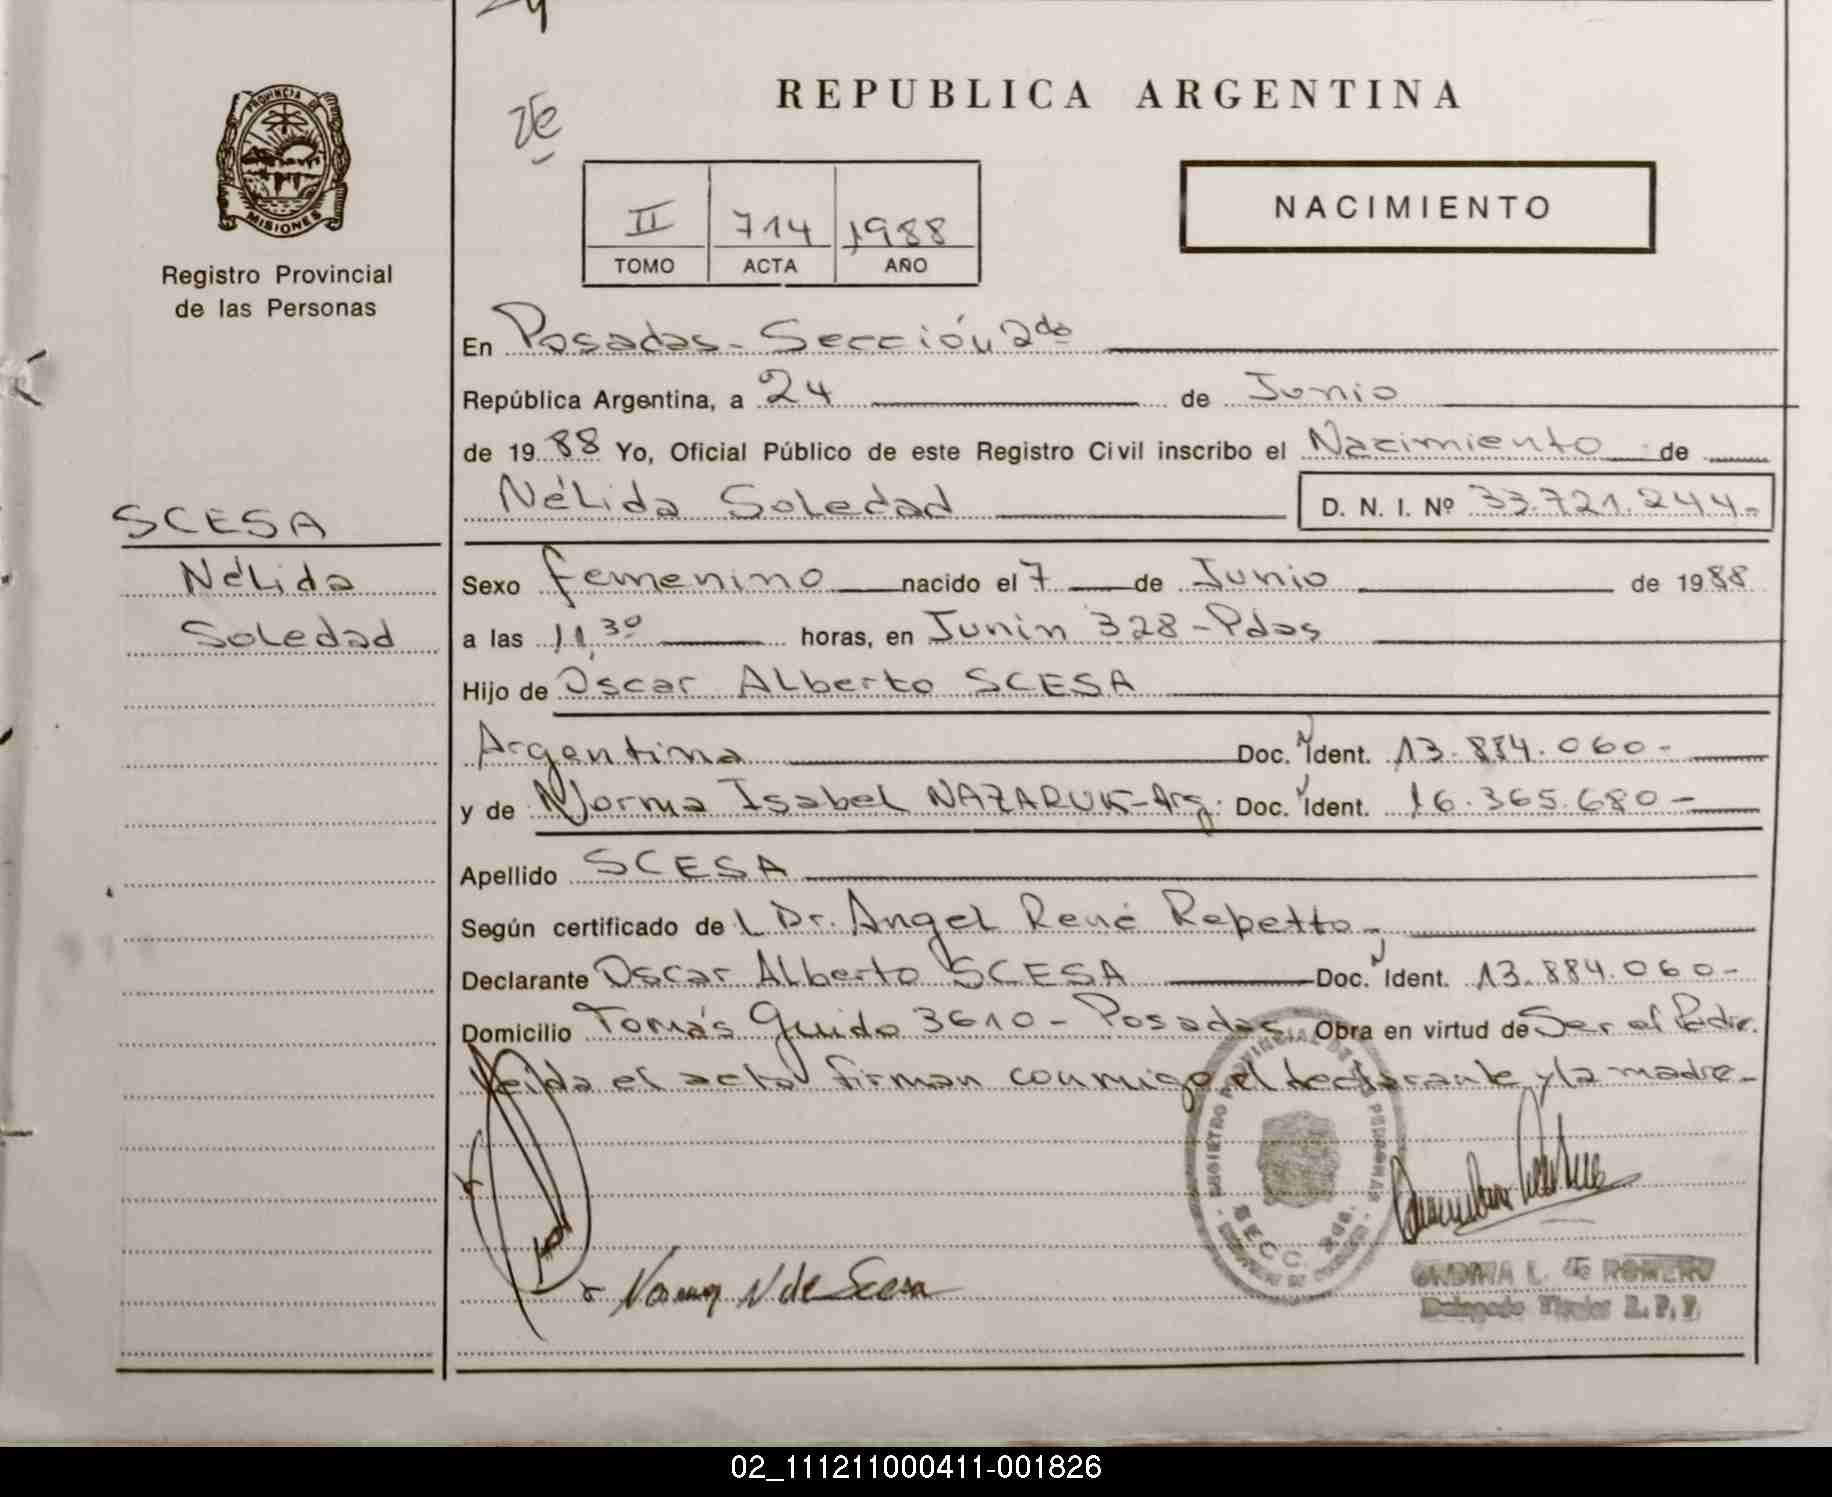 REPUBLICA ARGENTINA
PROVINCIA DE
MISIONES
Registro Provincial
de las Personas
II 714 1988
TOMO ACTA AÑO
NACIMIENTO
En Posadas - Sección 2da
República Argentina, a 24 de Junio
de 1988 Yo, Oficial Público de este Registro Civil inscribo el Nacimiento de
Nélida Soledad D. N. I. Nº 33.721.244.-
SCESA
Nélida
Soledad
Sexo femenino nacido el 7 de Junio de 1988
a las 11,30 horas, en Junín 328 - Pdas
Hijo de Oscar Alberto SCESA
Argentina Doc. Ident. 13.884.060-
y de Norma Isabel NAZARUK - Arg. Doc. Ident. 16.365.680-
Apellido SCESA
Según certificado del Dr. Angel René Repetto -
Declarante Oscar Alberto SCESA Doc. Ident. 13.884.060-
Domicilio Tomás Guido 3610 - Posadas Obra en virtud de Ser el Padre.
leída el acta firman conmigo el declarante y la madre -
REGISTRO PROVINCIAL DE LAS PERSONAS
SECC. 2da.
Norma N de Scesa
ONDINA L. de ROMERO
Delegado Titular R. P. P.
02_111211000411-001826